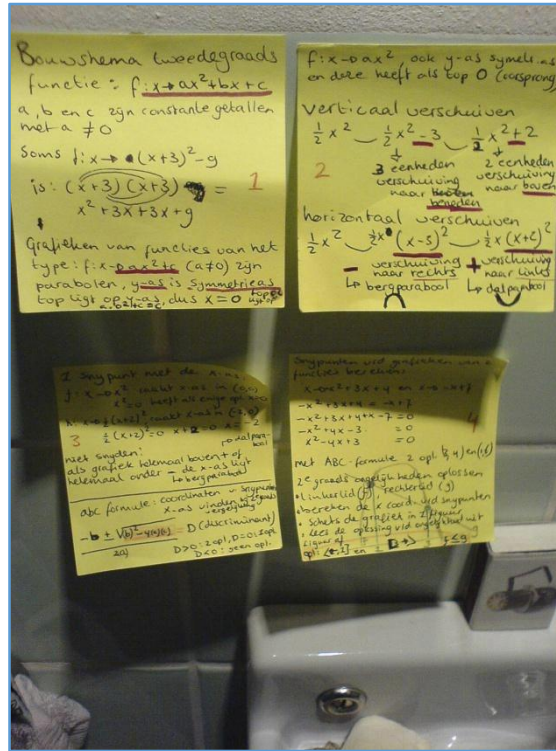 Bouwshema tweedegraads
functie: f: x→ ax²+bx+c
a, b en c zijn constante getallen
met a ≠ 0
Soms f: x→ (x+3)²-9
is: (x+3)(x+3) = 1
x²+3x+3x+9
Grafieken van functies van het
type: f: x→ ax²+c (a≠0) zijn
parabolen, y-as is symmetrieas
top ligt op y-as, dus x=0
f: x→ ax², ook y-as
en deze heeft als top O (oorsprong)
verticaal verschuiven
½x² ½x²-3 ½x²+2
2
3 eenheden
verschuiving
naar beneden
2 eenheden
verschuiving
naar boven
horizontaal verschuiven
½x² ½x (x-5)² ½x (x+6)²
- verschuiving
naar rechts
↳ bergparabool
+ verschuiving
naar links
↳ dalparabool
1 snypunt met de x-as
f: x→ x² raakt x-as in (0,0)
x²=0 heeft als enige opl. x=0
½(x+2)² raakt x-as in (-2,0)
3 ½(x+2)²=0 x+2=0 x=-2
niet snyden:
als grafiek helemaal boven + of
helemaal onder - de x-as ligt
↳ bergparabool
abc formule: coordinaten snypunten
x-as vinden
-b ± √(b)²-4(a)(c) = D (discriminant)
2(a)
D>0: 2 opl, D=0: 1 opl
D<0: geen opl.
Snypunten v/d grafieken van 2
functies bereken:
-x²+3x+4 = -x+7
-x²+3x+4+x-7 =0
-x²+4x-3 =0
x²-4x+3 =0
4
met ABC-formule 2 opl.
2e graads ongelijkheden oplossen
linkerlid (f) rechterlid (g)
bereken de x coord. v/d snypunten
schets de grafiek in 1 figuur
lees de oplossing v/d ongelijkheid uit